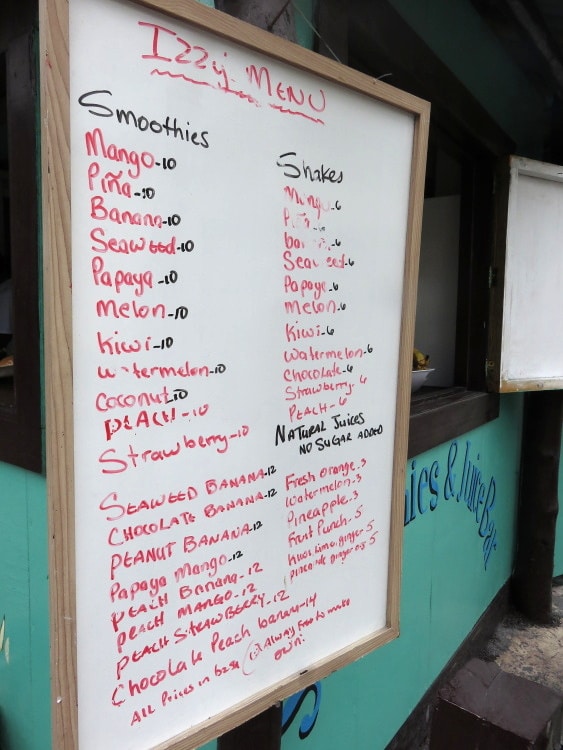 Izzy MENU
Smoothies
Mango-10
Piña-10
Banana-10
Seaweed-10
Papaya-10
Melon-10
Kiwi-10
watermelon-10
Coconut-10
PEACH-10
Strawberry-10
SEAWEED BANANA-12
CHOCOLATE BANANA-12
PEANUT BANANA-12
Papaya Mango-12
PEACH Banana-12
PEACH MANGO-12
PEACH STRAWBERRY-12
Chocolate Peach banana-14
ALL Prices in bze$
Always free to make
own!
Shakes
Mango-6
Piña
banana-6
Seaweed-6
Papaya-6
Melon-6
Kiwi-6
Watermelon-6
Chocolate-6
Strawberry-6
PEACH-6
NATURAL JUICES
NO SUGAR ADDED
Fresh orange.3
Watermelon.3
Pineapple.3
Fruit Punch.5
Kiwi.Lime.ginger.5
ginger 5
& Juice Bar